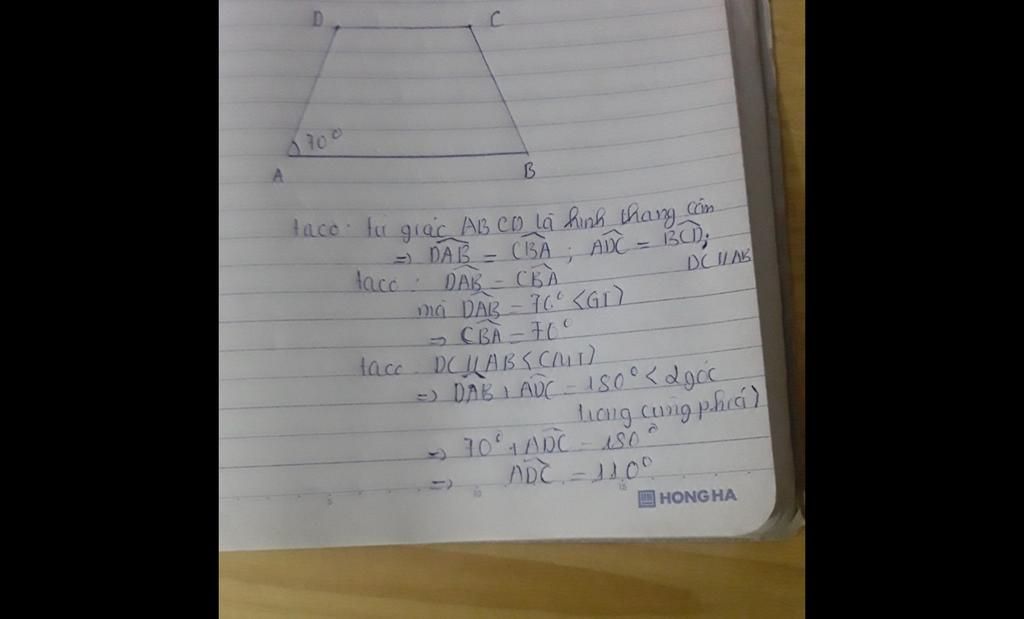 D C
70°
A B
taco: tứ giác ABCD là hình thang cân
=> DAB = CBA ; ADC = BCD;
DC // AB
taco: DAB = CBA
mà DAB = 70° <GT)
=> CBA = 70°
taco DC // AB <CMT)
=> DAB + ADC = 180° < 2 góc
trong cùng phía)
=> 70° + ADC = 180°
=> ADC = 110°
5 10 15
HONG HA